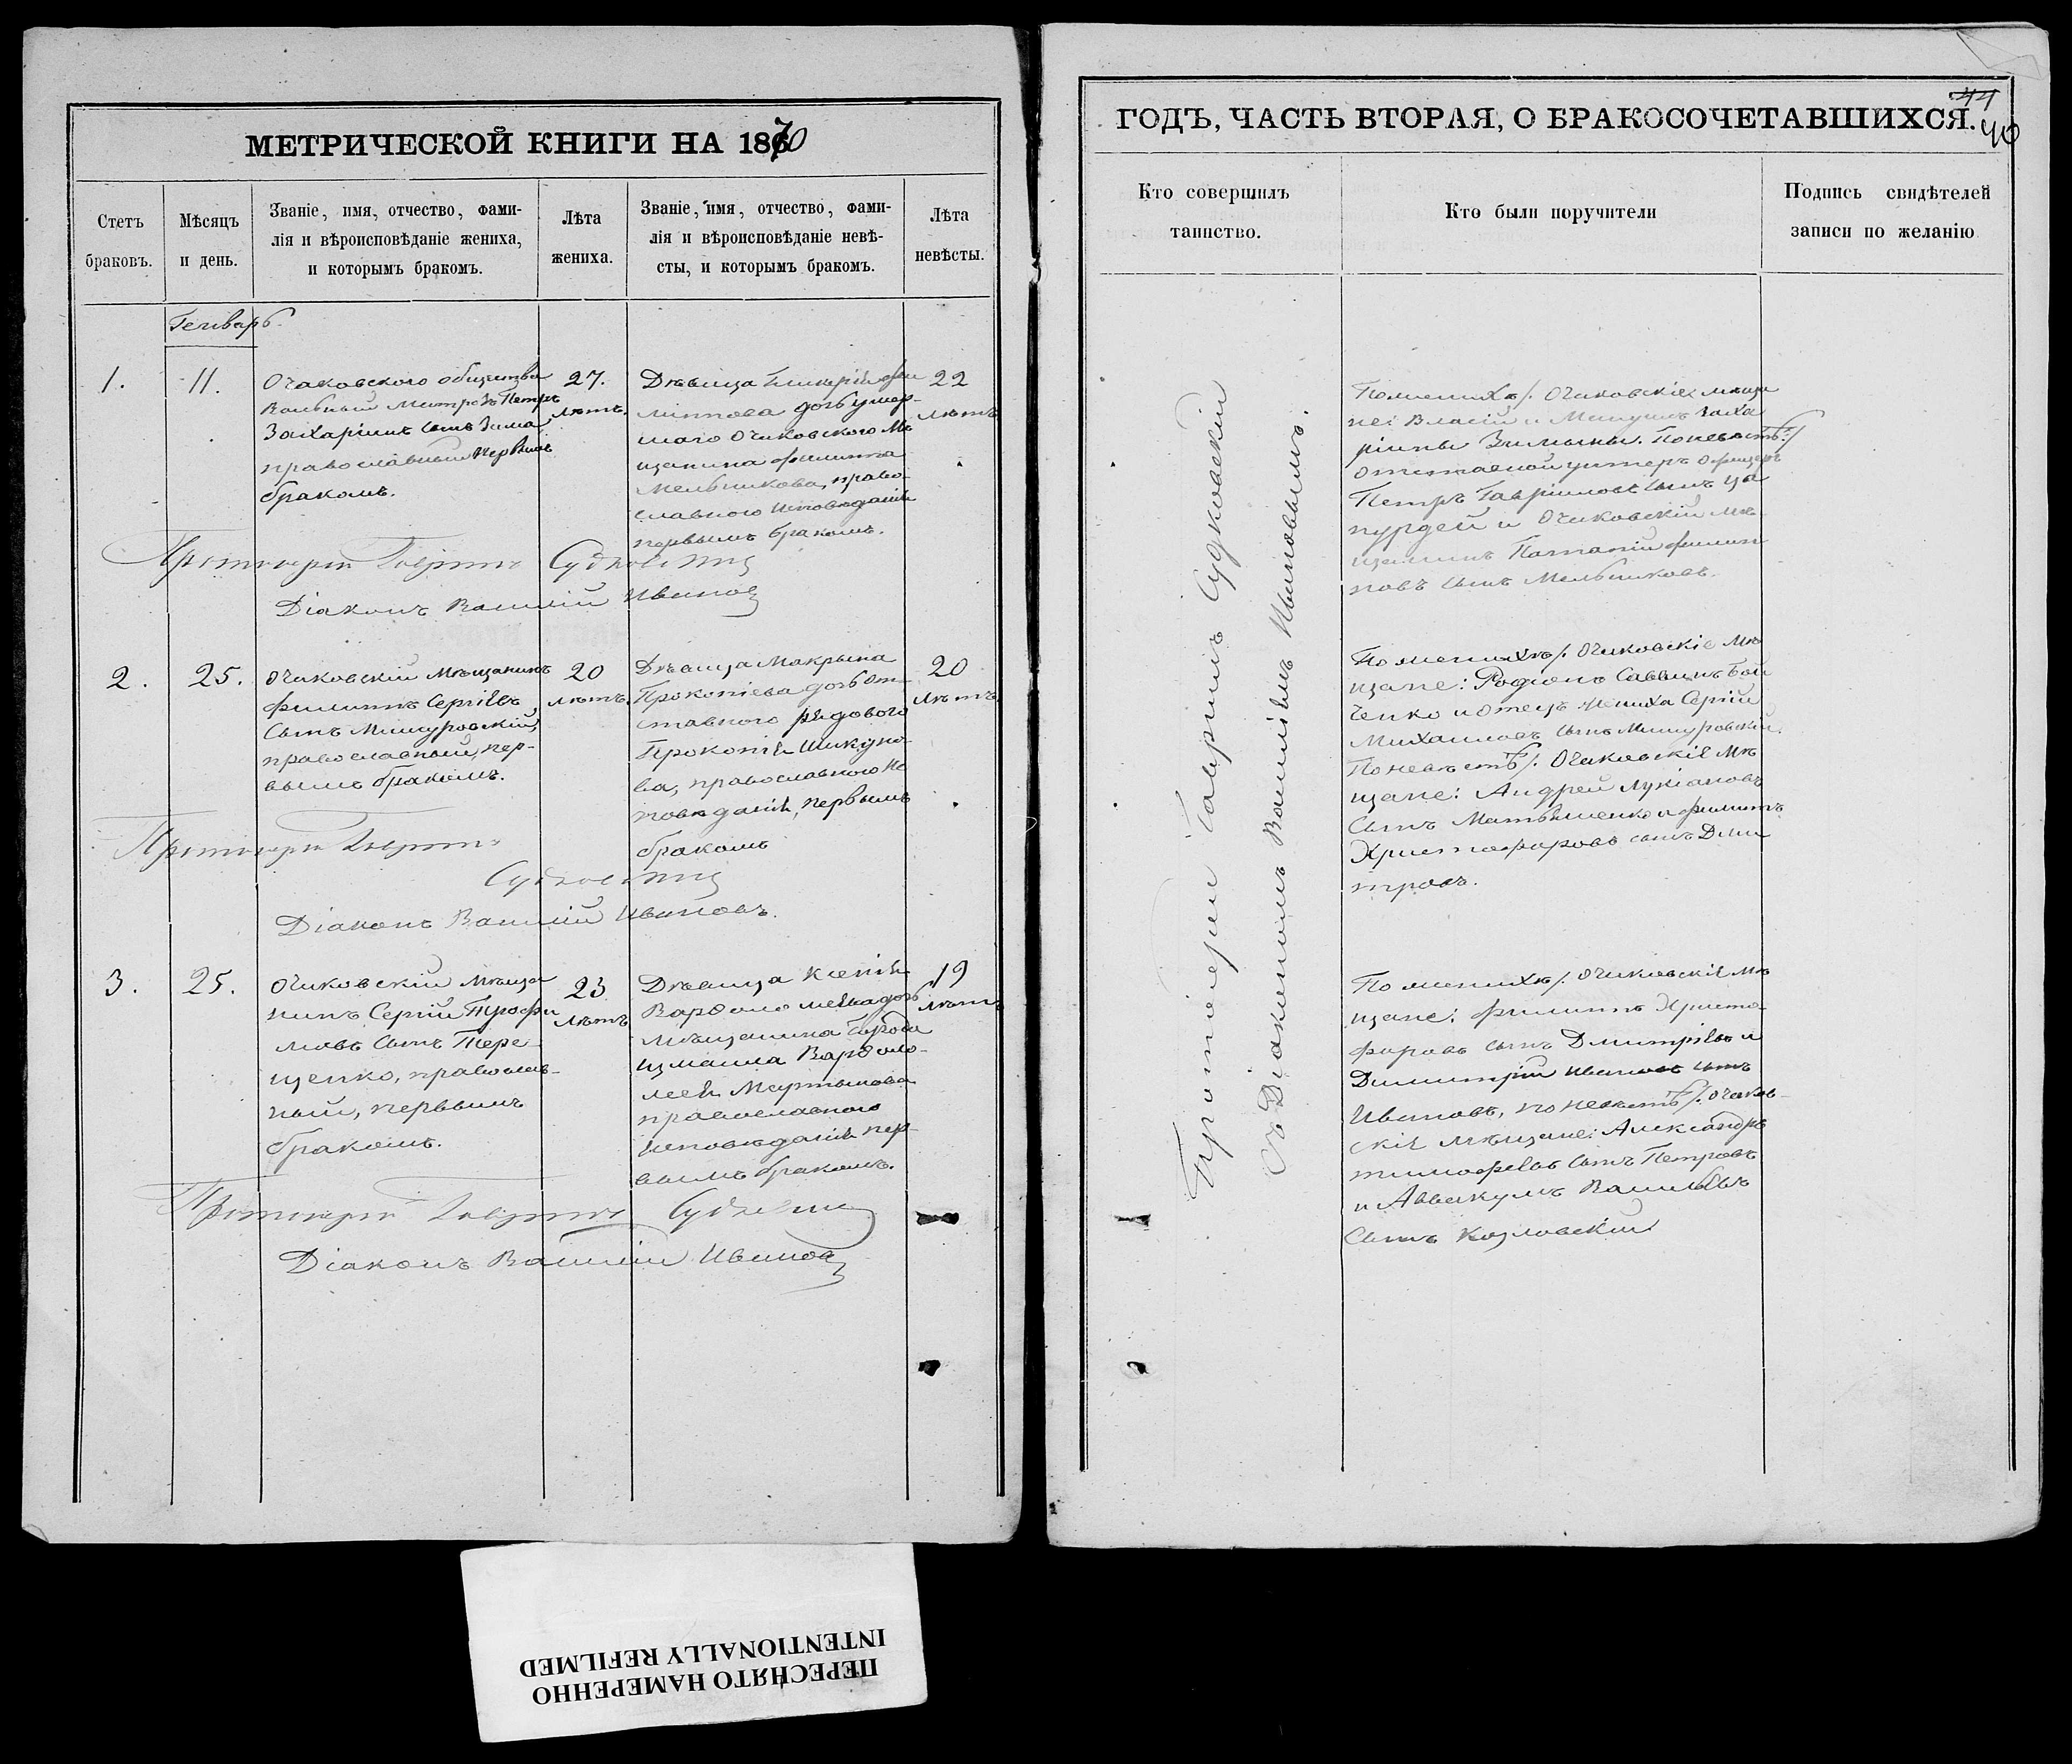 МЕТРИЧЕСКОЙ КНИГИ НА 1870
Счетъ
браковъ.
Мѣсяцъ
и день.
Званіе, имя, отчество, фами-
лія и вѣроисповѣданіе жениха,
и которымъ бракомъ.
Лѣта
жениха.
Званіе, имя, отчество, фами-
лія и вѣроисповѣданіе невѣ-
сты, и которымъ бракомъ.
Лѣта
невѣсты.
Генварь.
1.
11.
Очаковскаго общества
Вольный Матрозъ Петръ
Захаріинъ сынъ Зима,
православный первымъ
бракомъ.
27.
лѣтъ.
Дѣвица Гликерія Фи
липпова дочь умер-
шаго Очаковскаго Мѣ
щанина Филиппа
Мельникова, право-
славнаго исповѣданія
первымъ бракомъ.
22
лѣтъ
Протоіерей Гавріилъ Судковскій
Діаконъ Василій Ивановъ
2.
25.
Очаковскій Мѣщанинъ
Филиппъ Сергіевъ
сынъ Мишуровскій,
православный, пер-
вымъ бракомъ.
20
лѣтъ.
Дѣвица Макрына
Прокопіева дочь от-
ставного рядового
Прокопія Шикуно-
ва, православнаго ис
повѣданія, первымъ
бракомъ
20
лѣтъ.
Протоіерей Гавріилъ
Судковскій
Діаконъ Василій Ивановъ.
3.
25.
Очаковскій Мѣща
нинъ Сергій Трофи
мовъ сынъ Тере
щенко, православ-
ный, первымъ
бракомъ.
23
лѣтъ
Дѣвица Ксенія
Варѳоломеева дочь
мѣщанина города
Измаила Варѳоло-
мея Мартынова
православнаго
исповѣданія пер-
вымъ бракомъ.
19
лѣтъ
Протоіерей Гавріилъ Судковскій
Діаконъ Василій Ивановъ
ГОДЪ, ЧАСТЬ ВТОРАЯ, О БРАКОСОЧЕТАВШИХСЯ.
44
40
Кто совершилъ
таинство.
Кто были поручители
Подпись свидѣтелей
записи по желанію
Протоіерей Гавріилъ Судковскій
съ Діакономъ Василіемъ Ивановымъ.
По женихѣ/: Очаковскіе мѣща
не: Власій и Заха
ріины Зимыны. По невѣстѣ:/
отставной унтеръ офицеръ
Петръ Гавриловъ сынъ Ца
пурдей и Очаковскій мѣ
щанинъ Потапій Филип
повъ сынъ Мельниковъ.
По женихѣ/: Очаковскіе Мѣ
щане: Родіонъ Саввинъ Бой
ченко и отецъ жениха Сергій
Михаиловъ сынъ Мишуровскій.
По невѣстѣ/: Очаковскіе Мѣ
щане: Андрей Лукіановъ
сынъ Матвѣенко и Филиппъ
Христофоровъ сынъ Дми
тровъ.
По женихѣ/: Очаковскіе мѣ
щане: Филиппъ Христо-
форовъ сынъ Дмитріевъ и
Димитрій Ивановъ сынъ
Ивановъ, по невѣстѣ/: Очаков-
скіе мѣщане: Александръ
Тимофеевъ сынъ Петровъ
и Аввакумъ Васильевъ
сынъ Козловскій
ПЕРЕСНЯТО НАМЕРЕННО
INTENTIONALLY REFILMED